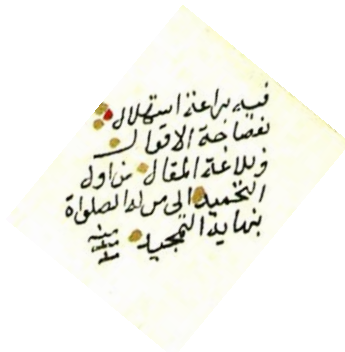 فيه براعة استهلال
بفصاحة الاقوال
وبلاغة المقال من اول
التحميد الى من له الصلواة
بنهاية التمجيد
منه